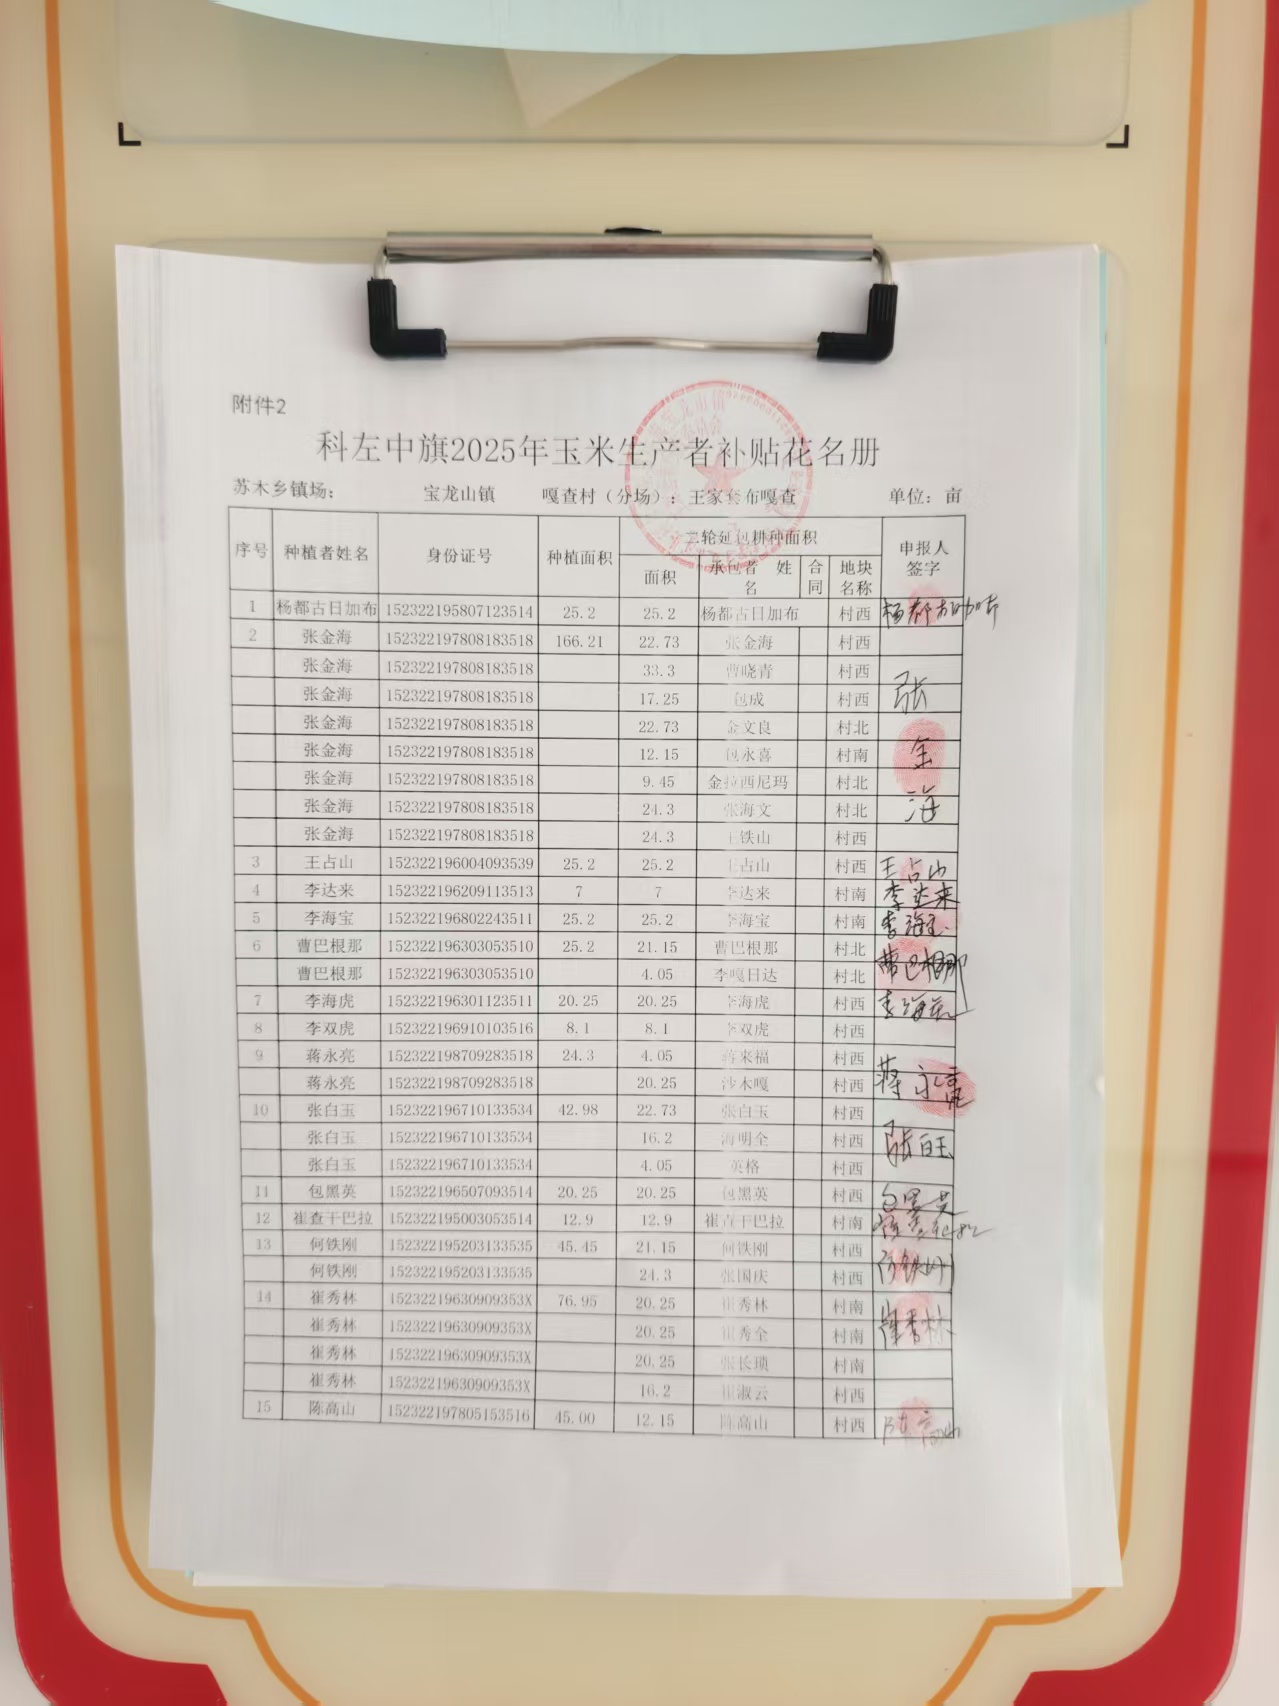 附件2
科左中旗2025年玉米生产者补贴花名册
苏木乡镇场： 宝龙山镇 嘎查村（分场）：王家套布嘎查 单位：亩
序号 种植者姓名 身份证号 种植面积 二轮延包耕种面积 申报人签字
面积 承包者 姓名 合同 地块名称
1 杨都古日加布 152322195807123514 25.2 25.2 杨都古日加布 村西 杨都古日加布
2 张金海 152322197808183518 166.21 22.73 张金海 村西
张金海 152322197808183518 33.3 曹晓青 村西
张金海 152322197808183518 17.25 包成 村西 张
张金海 152322197808183518 22.73 金文良 村北
张金海 152322197808183518 12.15 包永喜 村南 金
张金海 152322197808183518 9.45 金拉西尼玛 村北
张金海 152322197808183518 24.3 张海文 村北 海
张金海 152322197808183518 24.3 王铁山 村西
3 王占山 152322196004093539 25.2 25.2 王占山 村西 王占山
4 李达来 152322196209113513 7 7 李达来 村南 李达来
5 李海宝 152322196802243511 25.2 25.2 李海宝 村南 李海宝
6 曹巴根那 152322196303053510 25.2 21.15 曹巴根那 村北 曹巴根那
曹巴根那 152322196303053510 4.05 李嘎日达 村北
7 李海虎 152322196301123511 20.25 20.25 李海虎 村西 李海虎
8 李双虎 152322196910103516 8.1 8.1 李双虎 村西
9 蒋永亮 152322198709283518 24.3 4.05 蒋来福 村西 蒋永亮
蒋永亮 152322198709283518 20.25 沙木嘎 村西
10 张白玉 152322196710133534 42.98 22.73 张白玉 村西
张白玉 152322196710133534 16.2 海明全 村西 张白玉
张白玉 152322196710133534 4.05 英格 村西
11 包黑英 152322196507093514 20.25 20.25 包黑英 村西 包黑英
12 崔查干巴拉 152322195003053514 12.9 12.9 崔查干巴拉 村南
13 何铁刚 152322195203133535 45.45 21.15 何铁刚 村西 何铁刚
何铁刚 152322195203133535 24.3 张国庆 村西
14 崔秀林 15232219630909353X 76.95 20.25 崔秀林 村南 崔秀林
崔秀林 15232219630909353X 20.25 崔秀全 村南
崔秀林 15232219630909353X 20.25 张长琐 村南
崔秀林 15232219630909353X 16.2 崔淑云 村西
15 陈高山 152322197805153516 45.00 12.15 陈高山 村西 陈高山